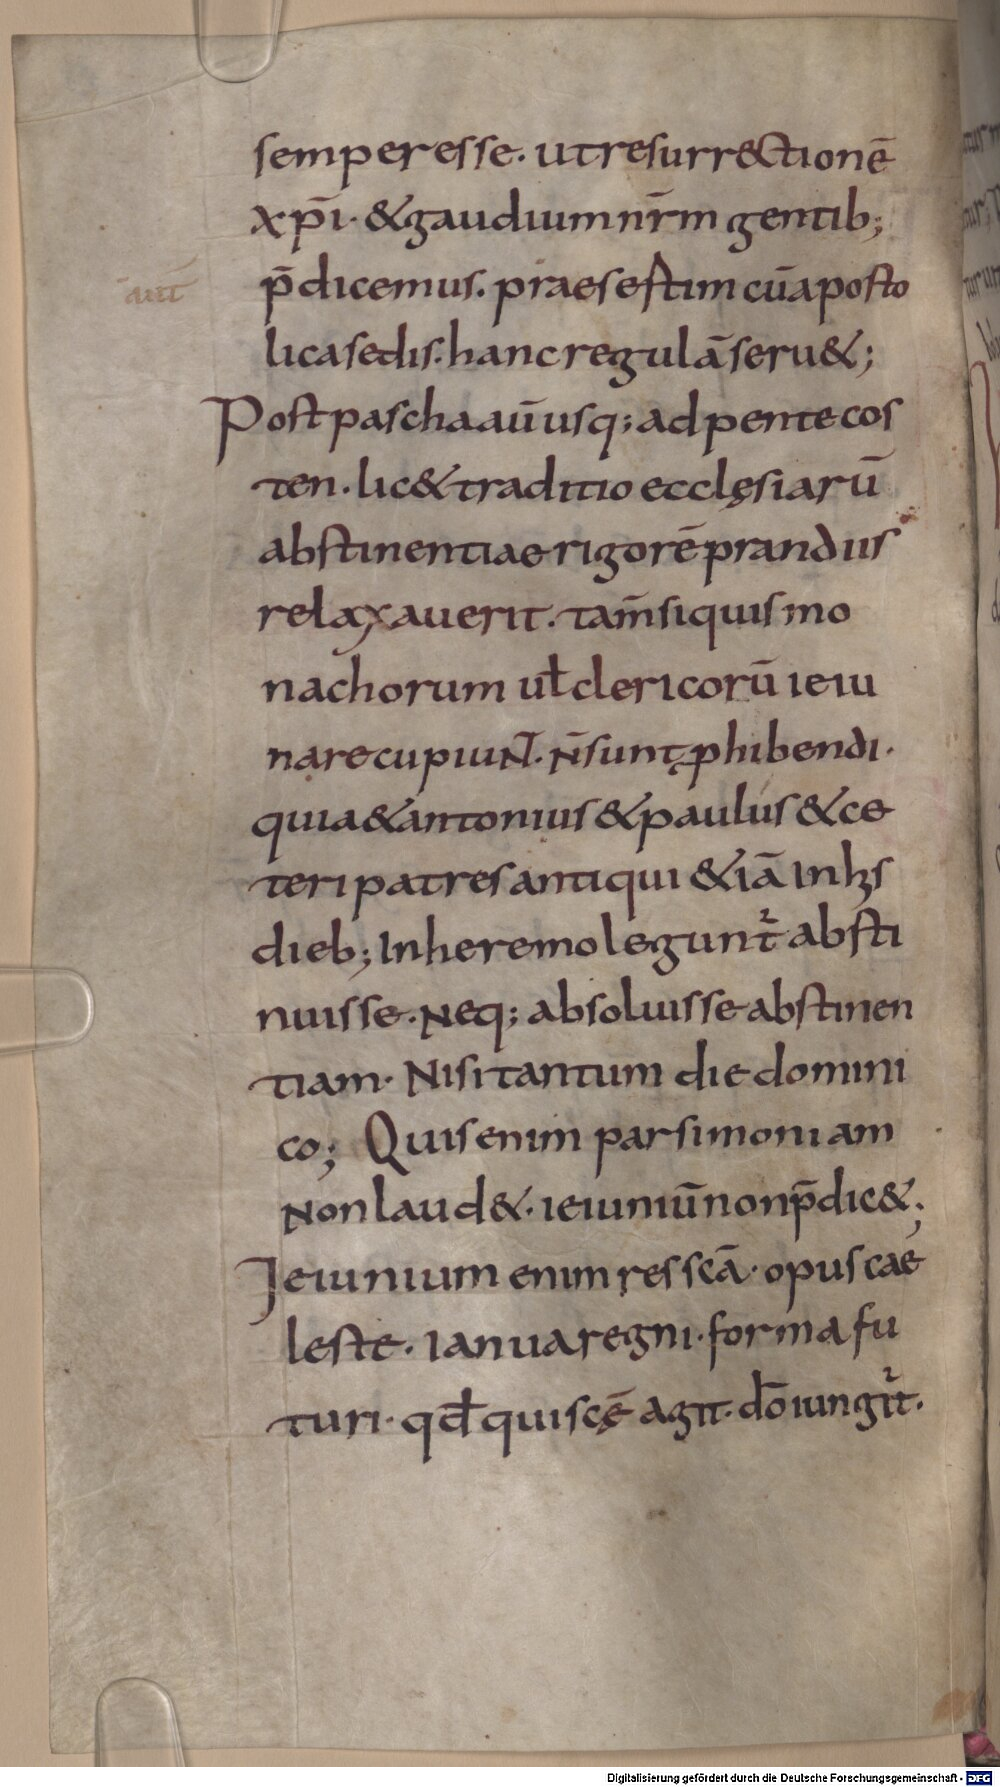 semper esse. ut resurr&ctionē
xpī. & gaudium nr̄m gentib;
p̄dicemus. praesestim cū aposto
lica sedis. hanc regulā seru&;
āut̄
Post pascha aū usq; ad pentecos
ten. lic& traditio ecclęsiarū
abstinentiae rigorē prandiis
relaxauerit. tam̄ si quis mo
nachorum uł clericorū ieiu
nare cupiuNT̄. N̄ sunt ꝓhibendi.
quia & antonius & paulus & ce
teri patres antiqui & iā In hįs
dieb; In heremo leguntᷣ absti
nuisse. Neq; absoluisse abstinen
tiam. Nisi tantum die domini
co; Quis enim parsimoniam
Non laud&. ieiuniū non p̄dic&;
Ieiunium enim res scā. opus cae
leste. Ianua regni. forma fu
turi. qđ qui scę̄ agit. dō iungitᷣ.
Digitalisierung gefördert durch die Deutsche Forschungsgemeinschaft - DFG